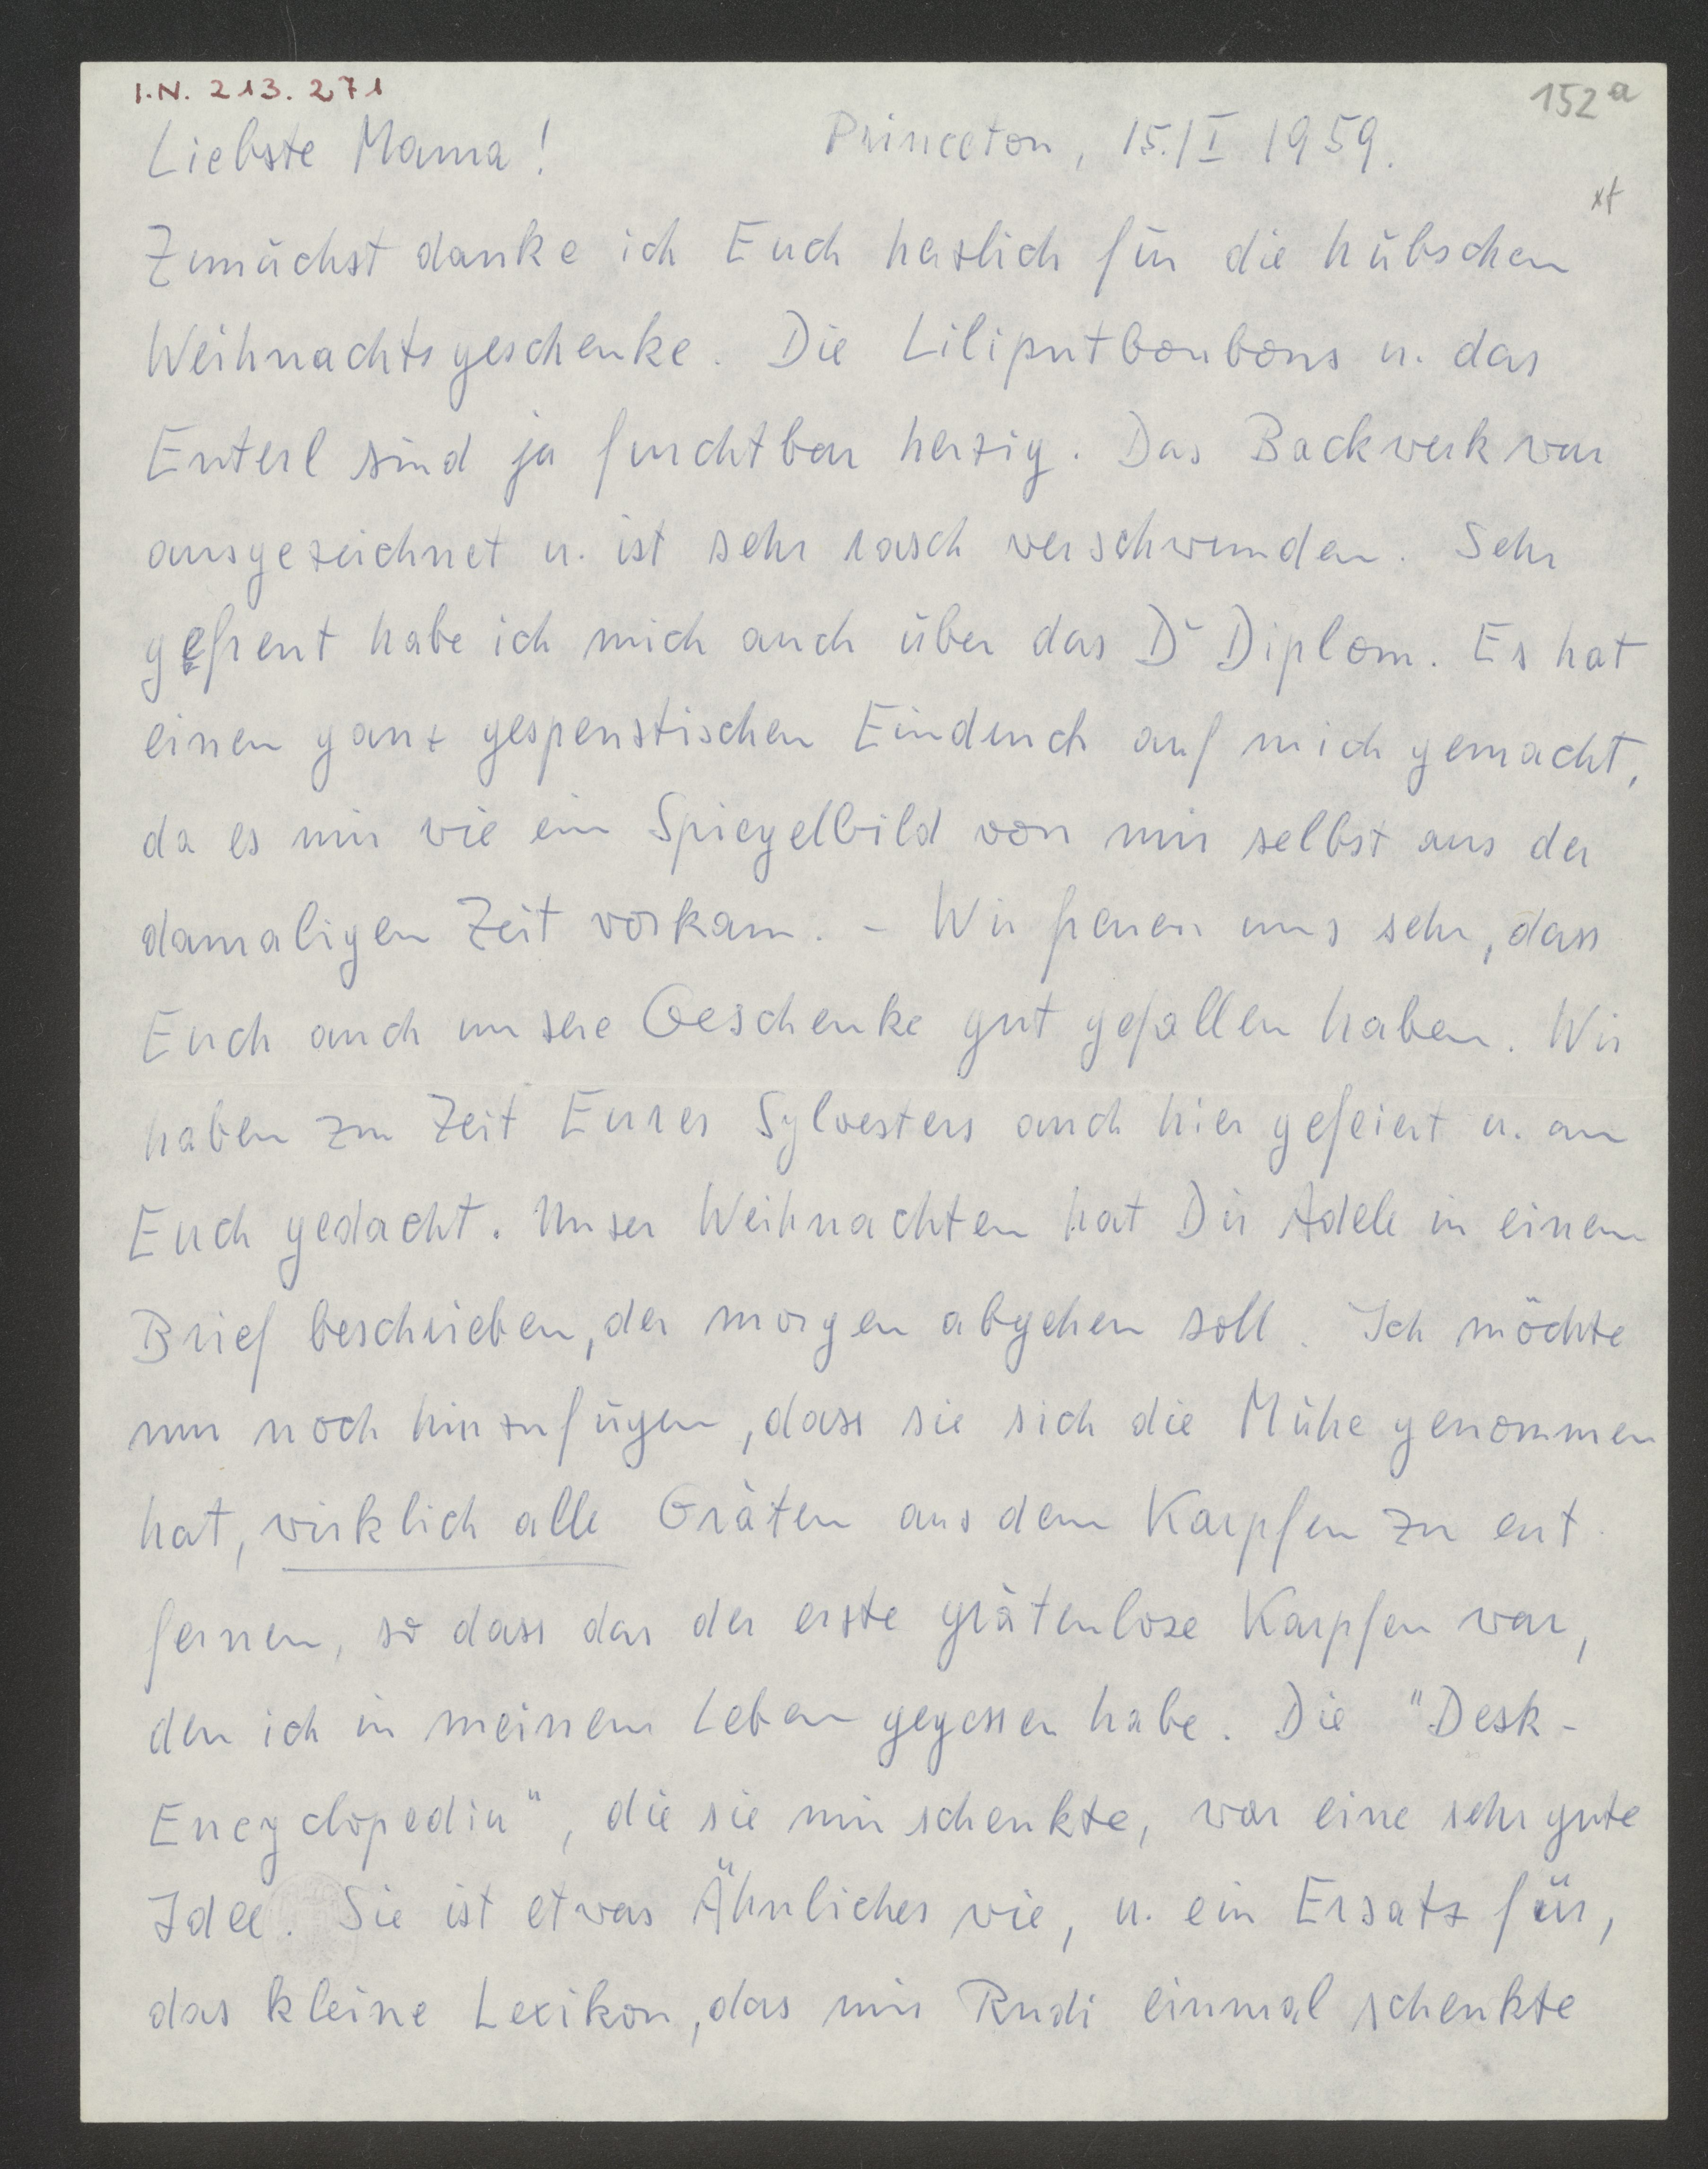 I.N. 213.271
152a
Liebste Mama! Princeton, 15./I 1959.
xt
Zunächst danke ich Euch herzlich für die hübschen
Weihnachtsgeschenke. Die Liliputbonbons u. das
Enterl sind ja furchtbar herzig. Das Backwerk war
ausgezeichnet u. ist sehr rasch verschwunden. Sehr
gefreut habe ich mich auch über das Dr Diplom. Es hat
einen ganz gespenstischen Eindruck auf mich gemacht,
da es mir wie ein Spiegelbild von mir selbst aus der
damaligen Zeit vorkam. – Wir freuen uns sehr, dass
Euch auch unsere Geschenke gut gefallen haben. Wir
haben zur Zeit Eures Sylvesters auch hier gefeiert u. an
Euch gedacht. Unser Weihnachten hat Dir Adele in einem
Brief beschrieben, der morgen abgehen soll. Ich möchte
nur noch hinzufügen, dass sie sich die Mühe genommen
hat, wirklich alle Gräten aus dem Karpfen zu ent
fernen, so dass das der erste grätenlose Karpfen war,
den ich in meinem Leben gegessen habe. Die "Desk-
Encyclopedia", die sie mir schenkte, war eine sehr gute
Idee. Sie ist etwas Ähnliches wie, u. ein Ersatz für,
das kleine Lexikon, das mir Rudi einmal schenkte